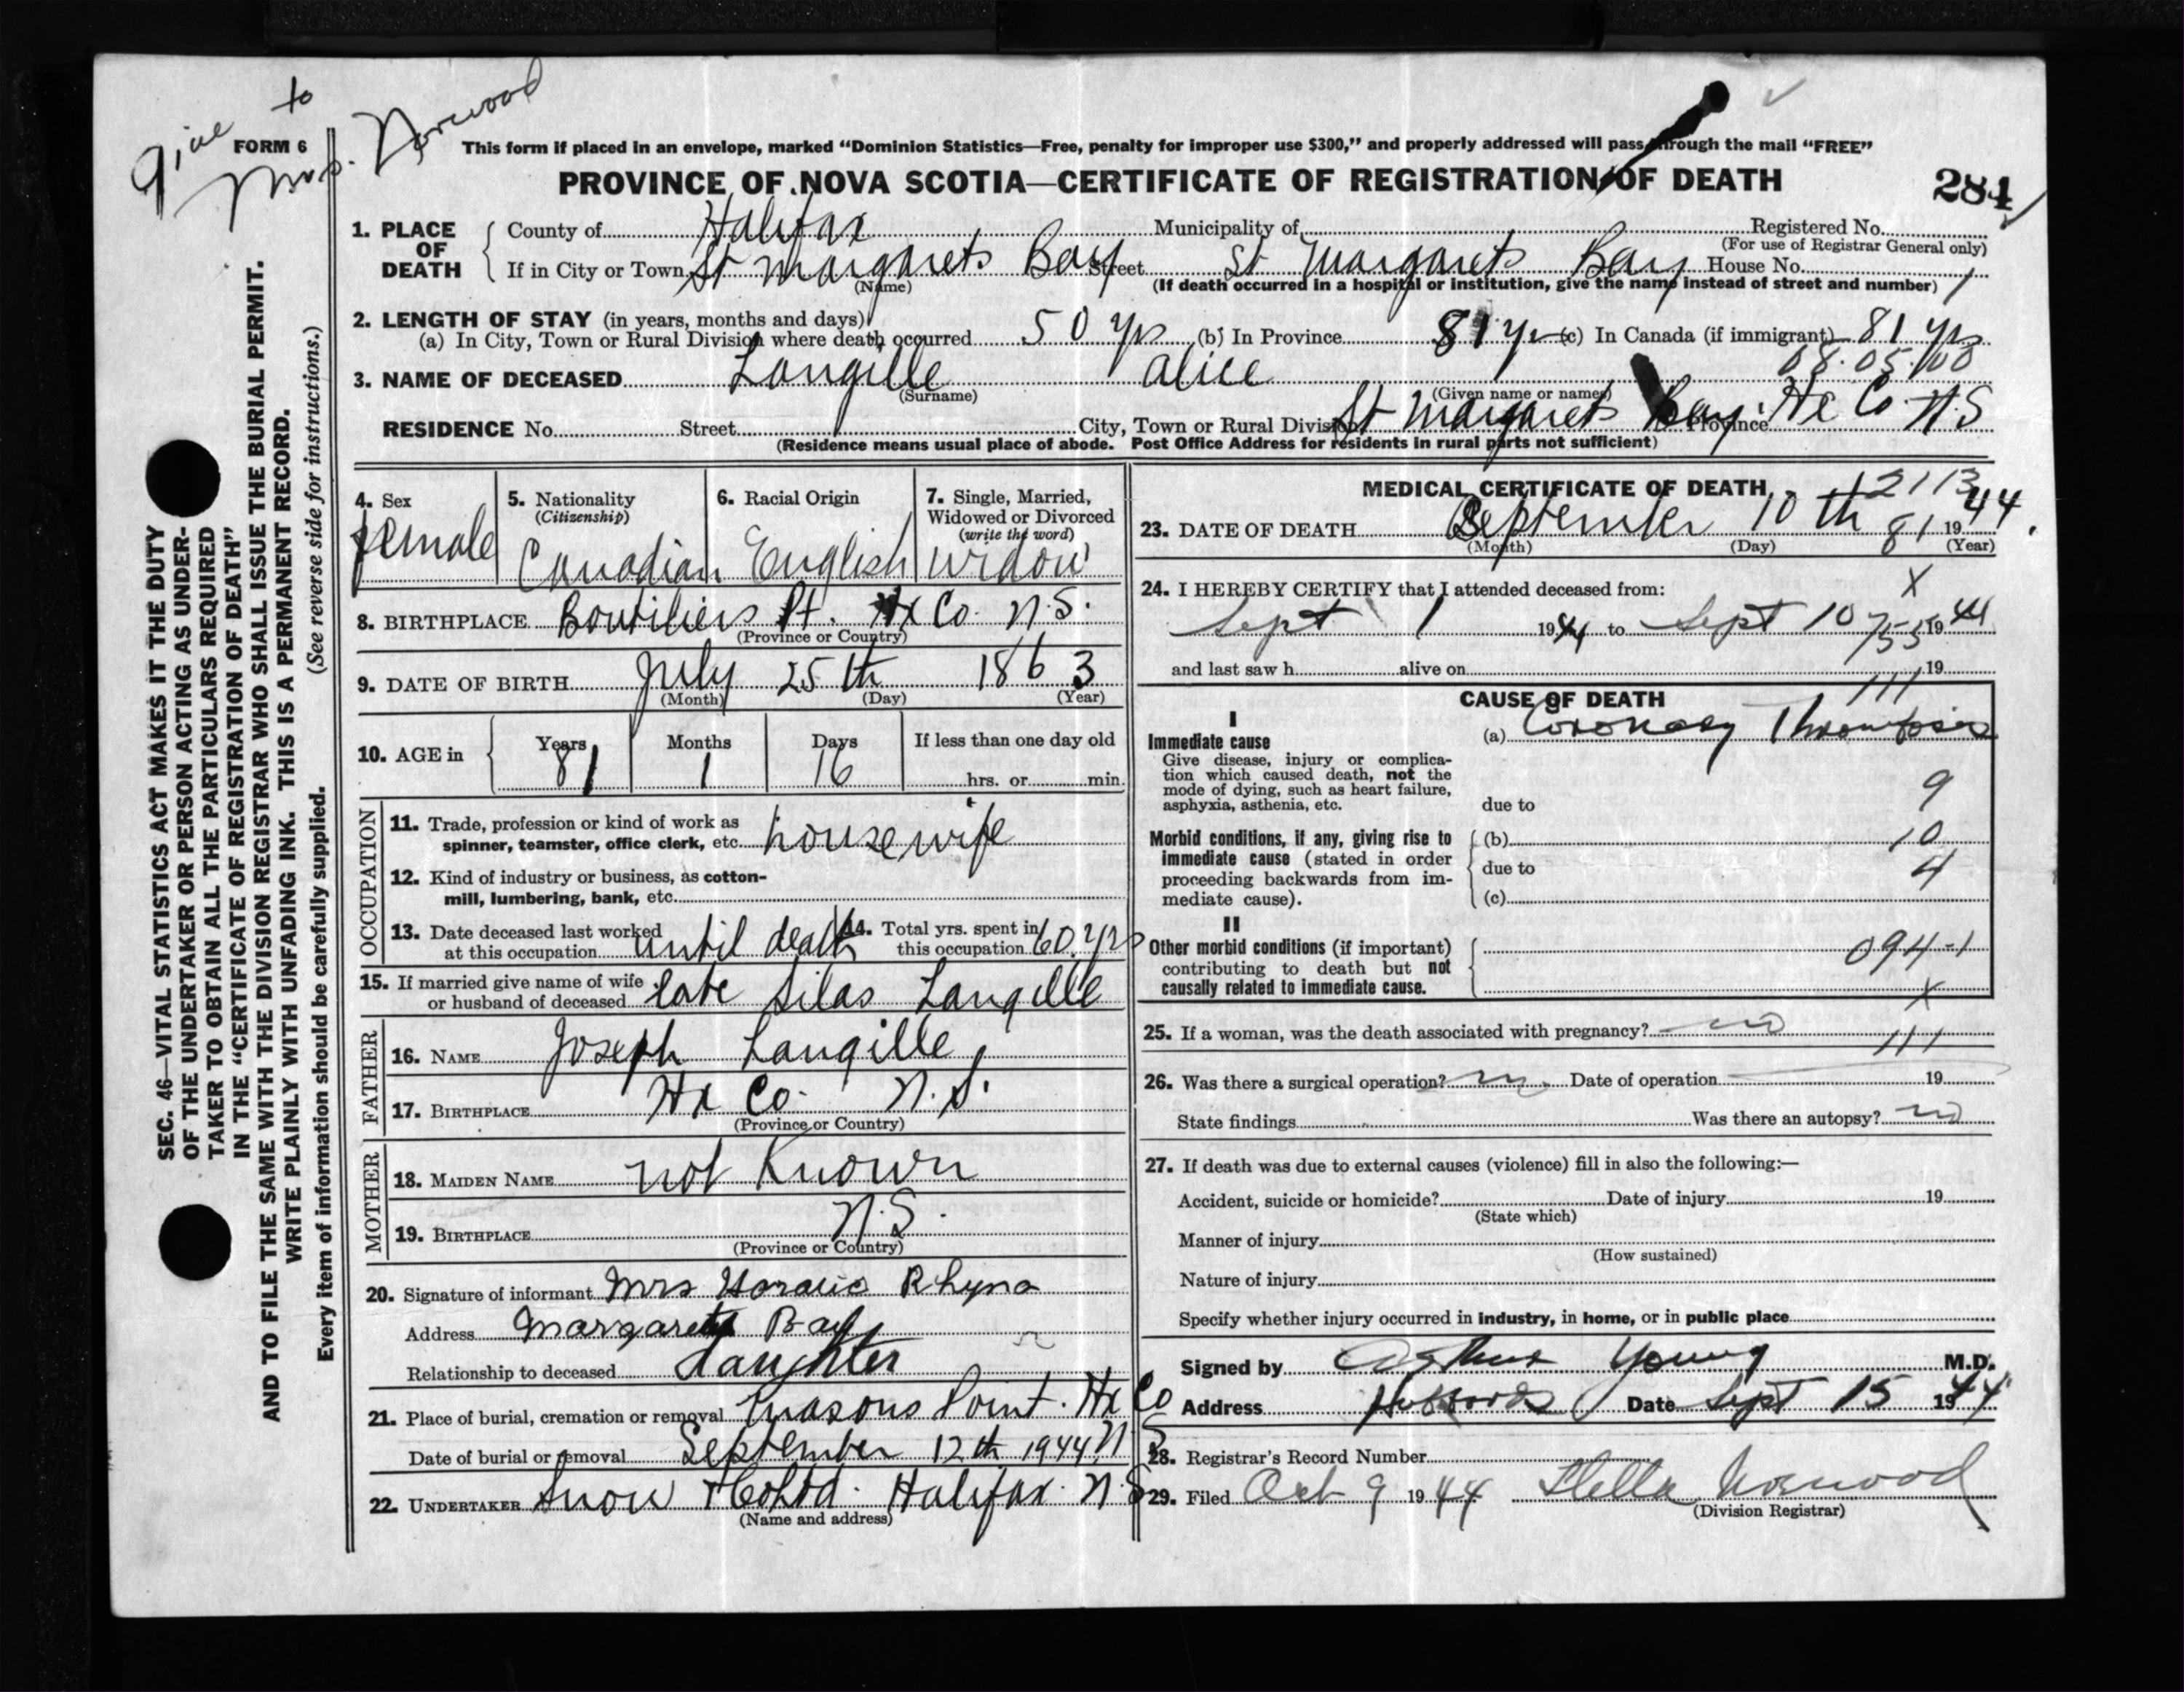 give to
Mrs. Norwood
FORM 6
This form if placed in an envelope, marked “Dominion Statistics—Free, penalty for improper use $300,” and properly addressed will pass through the mail “FREE”
PROVINCE OF NOVA SCOTIA—CERTIFICATE OF REGISTRATION OF DEATH
284
SEC. 46—VITAL STATISTICS ACT MAKES IT THE DUTY
OF THE UNDERTAKER OR PERSON ACTING AS UNDER-
TAKER TO OBTAIN ALL THE PARTICULARS REQUIRED
IN THE “CERTIFICATE OF REGISTRATION OF DEATH”
AND TO FILE THE SAME WITH THE DIVISION REGISTRAR WHO SHALL ISSUE THE BURIAL PERMIT.
WRITE PLAINLY WITH UNFADING INK. THIS IS A PERMANENT RECORD.
Every item of information should be carefully supplied. (See reverse side for instructions.)
1. PLACE OF DEATH
County of Halifax Municipality of Registered No.
(For use of Registrar General only)
If in City or Town St Margarets Bay Street St Margarets Bay House No.
(Name) (If death occurred in a hospital or institution, give the name instead of street and number) 1
2. LENGTH OF STAY (in years, months and days)
(a) In City, Town or Rural Division where death occurred 50 yrs (b) In Province 81 yr (c) In Canada (if immigrant) 81 yrs
08.05/00
3. NAME OF DECEASED Langille Alice
(Surname) (Given name or names)
RESIDENCE No. Street City, Town or Rural Division St Margarets Bay Province Hx Co N.S
(Residence means usual place of abode. Post Office Address for residents in rural parts not sufficient)
4. Sex
female
5. Nationality
(Citizenship)
Canadian
6. Racial Origin
English
7. Single, Married,
Widowed or Divorced
(write the word)
widow
8. BIRTHPLACE Boutiliers Pt. Hx Co. N.S.
(Province or Country)
9. DATE OF BIRTH July 25th 1863
(Month) (Day) (Year)
10. AGE in Years Months Days If less than one day old
81 1 16 hrs. or min.
OCCUPATION
11. Trade, profession or kind of work as
spinner, teamster, office clerk, etc. housewife
12. Kind of industry or business, as cotton-
mill, lumbering, bank, etc.
13. Date deceased last worked
at this occupation until death
14. Total yrs. spent in
this occupation 60 yrs
15. If married give name of wife
or husband of deceased late Silas Langille
FATHER
16. NAME Joseph Langille
17. BIRTHPLACE Hx Co. N.S.
(Province or Country)
MOTHER
18. MAIDEN NAME not Known
19. BIRTHPLACE N.S.
(Province or Country)
20. Signature of informant Mrs Horatio Rhyno
Address Margarets Bay
Relationship to deceased daughter
21. Place of burial, cremation or removal Masons Point. Hx Co
Date of burial or removal September 12th 1944 N S
22. UNDERTAKER Snow & Co Ltd. Halifax. N S
(Name and address)
MEDICAL CERTIFICATE OF DEATH
12113
23. DATE OF DEATH September 10th 1944
81
(Month) (Day) (Year)
24. I HEREBY CERTIFY that I attended deceased from:
X
Sept 1 1944 to Sept 10 1944
755
and last saw h alive on , 19
111
CAUSE OF DEATH
I
Immediate cause
Give disease, injury or complica-
tion which caused death, not the
mode of dying, such as heart failure,
asphyxia, asthenia, etc.
(a) Coronary Thrombosis
9
due to
Morbid conditions, if any, giving rise to
immediate cause (stated in order
proceeding backwards from im-
mediate cause).
(b) 10
due to 4
(c)
II
Other morbid conditions (if important)
contributing to death but not
causally related to immediate cause.
094-1
X
25. If a woman, was the death associated with pregnancy? no
111
26. Was there a surgical operation? no Date of operation 19
State findings Was there an autopsy? no
27. If death was due to external causes (violence) fill in also the following:—
Accident, suicide or homicide? Date of injury 19
(State which)
Manner of injury
(How sustained)
Nature of injury
Specify whether injury occurred in industry, in home, or in public place
Signed by Arthur Young M.D.
Address Hubbards Date Sept 15 1944
28. Registrar's Record Number
29. Filed Oct 9 1944 Stella Norwood
(Division Registrar)